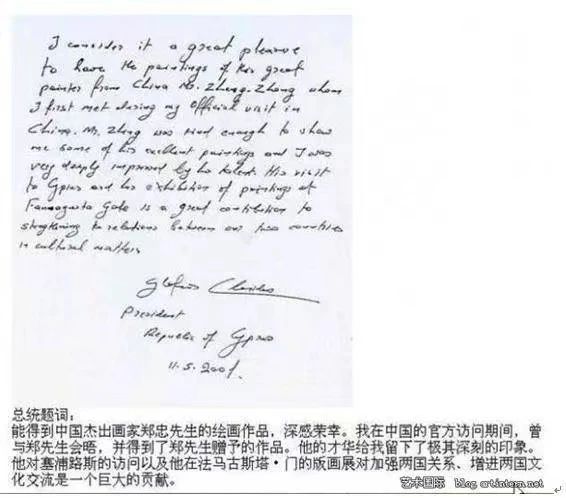 I consider it a great pleasure
to have the paintings of this great
painter from China Mr. Zheng-Zhong whom
I first met during my Official visit in
China. Mr. Zhong was kind enough to show
me some of his excellent paintings and I was
very deeply impressed by his talent. His visit
to Cyprus and his exhibition of paintings at
Famagusta Gate is a great contribution to
strengthening the relations between our two countries
in cultural matters.
President
Republic of Cyprus
11.5.2001.
总统题词:
能得到中国杰出画家郑忠先生的绘画作品，深感荣幸。我在中国的官方访问期间，曾
与郑先生会晤，并得到了郑先生赠予的作品。他的才华给我留下了极其深刻的印象。
他对塞浦路斯的访问以及他在法马古斯塔·门的版画展对加强两国关系、增进两国文
化交流是一个巨大的贡献。
艺术国际 blog.artintern.net